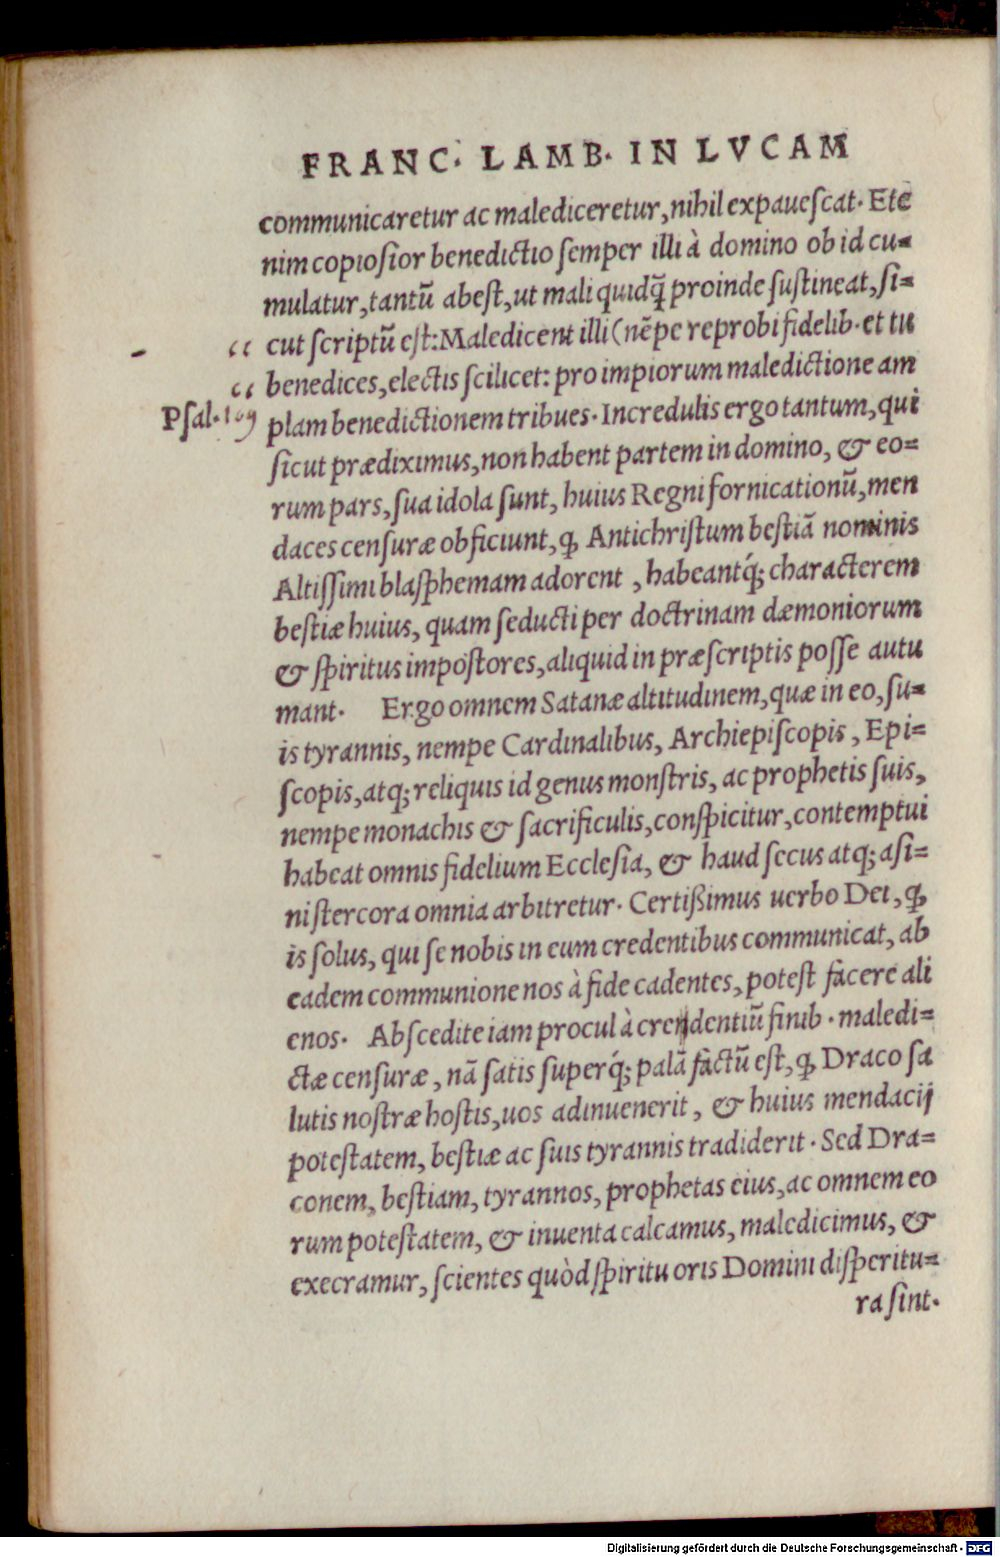 FRANC. LAMB. IN LVCAM
communicaretur ac malediceretur, nihil expaueſcat. Ete
nim copioſior benedictio ſemper illi à domino ob id cu=
mulatur, tantũ abeſt, ut mali quidq̃ proinde ſuſtineat, ſi=
cut ſcriptũ eſt: Maledicent illi (nẽpe reprobi fidelib. et tu
benedices, electis ſcilicet: pro impiorum maledictione am
Pſal. 109 plam benedictionem tribues. Incredulis ergo tantum, qui
ſicut prædiximus, non habent partem in domino, & eo=
rum pars, ſua idola ſunt, huius Regni fornicationũ, men
daces cenſuræ obficiunt, ꝙ Antichriſtum beſtiã nominis
Altiſſimi blaſphemam adorent, habeantq́; characterem
beſtiæ huius, quam ſeducti per doctrinam dæmoniorum
& ſpiritus impoſtores, aliquid in præſcriptis poſſe autu
mant. Ergo omnem Satanæ altitudinem, quæ in eo, ſu=
is tyrannis, nempe Cardinalibus, Archiepiſcopis, Epi=
ſcopis, atq; reliquis id genus monſtris, ac prophetis ſuis,
nempe monachis & ſacrificulis, conſpicitur, contemptui
habeat omnis fidelium Eccleſia, & haud ſecus atq; aſi=
ni ſtercora omnia arbitretur. Certißimus uerbo Dei, ꝙ
is ſolus, qui ſe nobis in eum credentibus communicat, ab
eadem communione nos à fide cadentes, poteſt facere ali
enos. Abſcedite iam procul à crendentiũ finib. maledi=
ctæ cenſuræ, nã ſatis ſuperq́; palã factũ eſt, ꝙ Draco ſa
lutis noſtræ hoſtis, uos adinuenerit, & huius mendacij
poteſtatem, beſtiæ ac ſuis tyrannis tradiderit. Sed Dra=
conem, beſtiam, tyrannos, prophetas eius, ac omnem eo
rum poteſtatem, & inuenta calcamus, maledicimus, &
execramur, ſcientes quòd ſpiritu oris Domini diſperitu=
ra ſint.
Digitalisierung gefördert durch die Deutsche Forschungsgemeinschaft - DFG